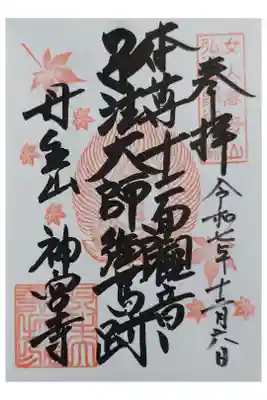 奉拝
令和七年十二月六日
本尊十一面觀音
弘法大師御跡
丹生山 神宮寺
女人高野山